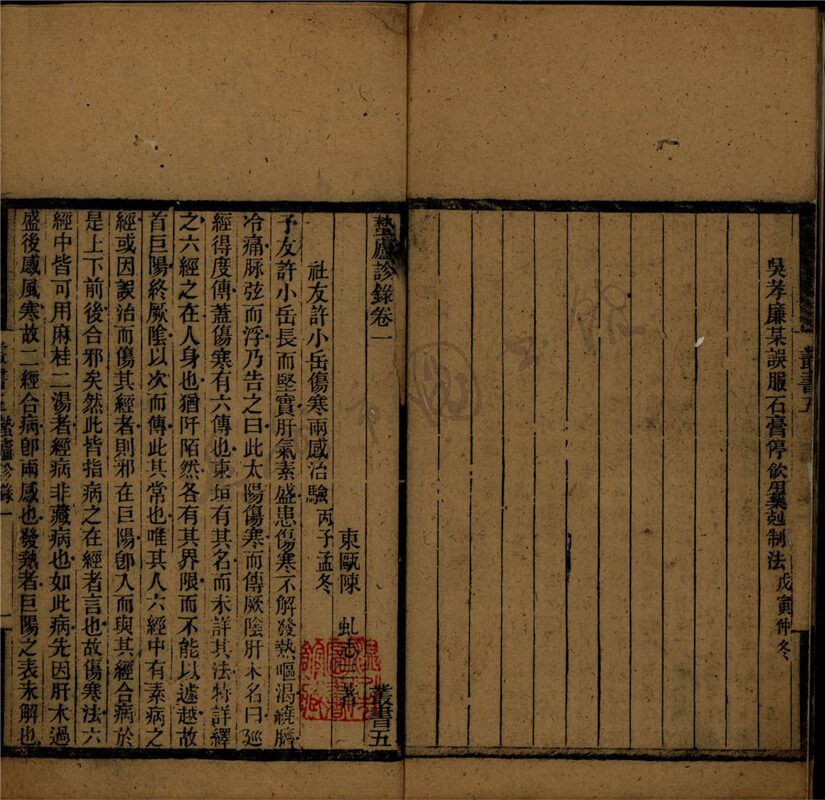 吳孝廉某誤服石膏停飲用藥尅制法戊寅仲冬
叢書五
蟄廬診錄卷一
叢書五
東甌陳 虬志三著
社友許小岳傷寒兩感治驗丙子孟冬
予友許小岳長而堅實肝氣素盛患傷寒不解發熱嘔渴繞臍
冷痛脉弦而浮乃告之曰此太陽傷寒而傳厥陰肝木名曰廵
經得度傳蓋傷寒有六傳也東垣有其名而未詳其法特詳繹
之六經之在人身也猶阡陌然各有其界限而不能以遽越故
首巨陽終厥陰以次而傳此其常也唯其人六經中有素病之
經或因誤治而傷其經者則邪在巨陽卽入而與其經合病於
是上下前後合邪矣然此皆指病之在經者言也故傷寒法六
經中皆可用麻桂二湯者經病非藏病也如此病先因肝木過
盛後感風寒故二經合病卽兩感也發熱者巨陽之表未解也
叢書五 蟄廬診錄一 一